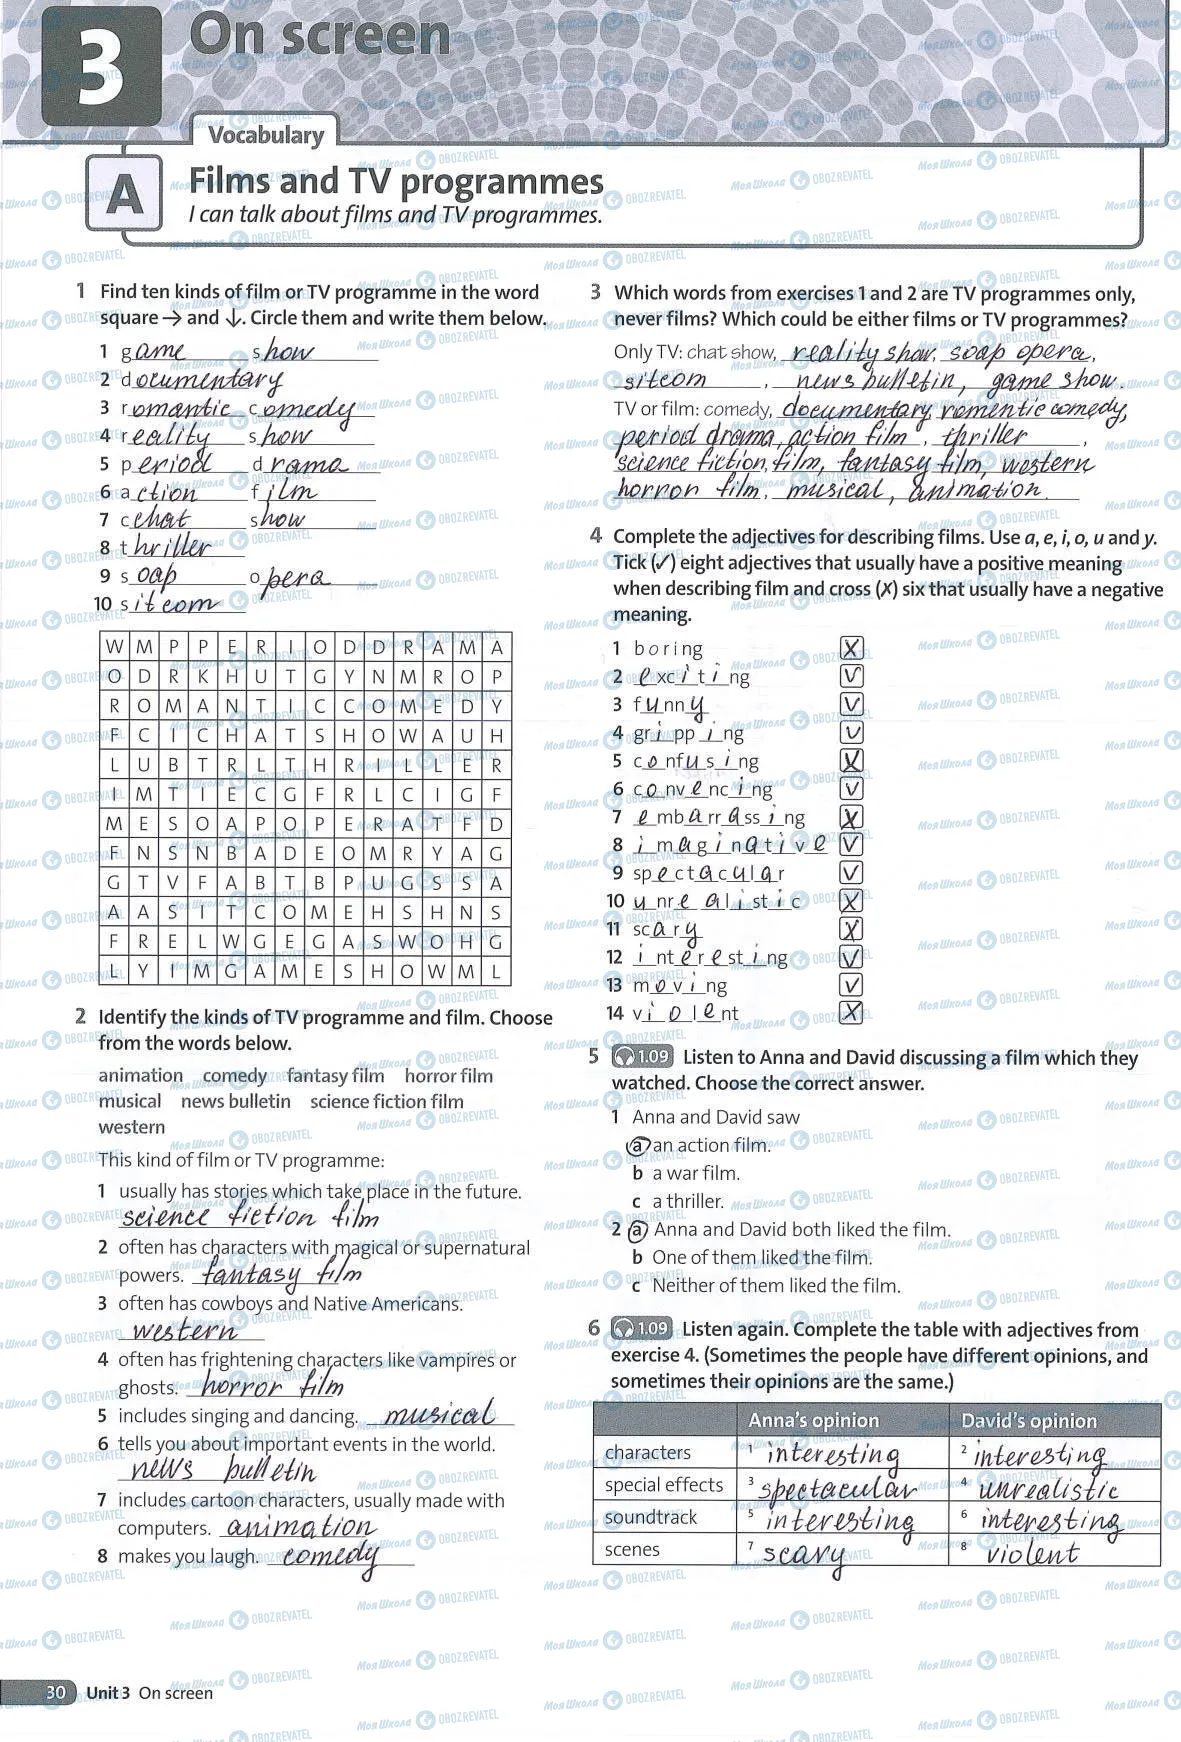 3
On screen
Vocabulary
A
Films and TV programmes
I can talk about films and TV programmes.
1 Find ten kinds of film or TV programme in the word
square → and ↓. Circle them and write them below.
1 game show
2 documentary
3 romantic comedy
4 reality show
5 period drama
6 action film
7 cchat show
8 thriller
9 soap opera
10 sitcom
W M P P E R I O D D R A M A
O D R K H U T G Y N M R O P
R O M A N T I C C O M E D Y
F C I C H A T S H O W A U H
L U B T R L T H R I L L E R
I M T I E C G F R L C I G F
M E S O A P O P E R A T F D
F N S N B A D E O M R Y A G
G T V F A B T B P U G S S A
A A S I T C O M E H S H N S
F R E L W G E G A S W O H G
L Y I M G A M E S H O W M L
2 Identify the kinds of TV programme and film. Choose
from the words below.
animation comedy fantasy film horror film
musical news bulletin science fiction film
western
This kind of film or TV programme:
1 usually has stories which take place in the future.
science fiction film
2 often has characters with magical or supernatural
powers. fantasy film
3 often has cowboys and Native Americans.
western
4 often has frightening characters like vampires or
ghosts. horror film
5 includes singing and dancing. musical
6 tells you about important events in the world.
news bulletin
7 includes cartoon characters, usually made with
computers. animation
8 makes you laugh. comedy
3 Which words from exercises 1 and 2 are TV programmes only,
never films? Which could be either films or TV programmes?
Only TV: chat show, reality show, soap opera,
sitcom, news bulletin, game show.
TV or film: comedy, documentary, romentic comedy,
period drama, action film, thriller,
science fiction, film, fantasy film, western
horron film, musical, animation.
4 Complete the adjectives for describing films. Use a, e, i, o, u and y.
Tick (✓) eight adjectives that usually have a positive meaning
when describing film and cross (✗) six that usually have a negative
meaning.
1 boring X
2 exciting V
3 funny V
4 gripping V
5 confusing X
6 convencing V
7 embarrassing X
8 imaginative V
9 spectacular V
10 unrealistic X
11 scary X
12 interesting V
13 moving V
14 violent X
5 1.09 Listen to Anna and David discussing a film which they
watched. Choose the correct answer.
1 Anna and David saw
a an action film.
b a war film.
c a thriller.
2 a Anna and David both liked the film.
b One of them liked the film.
c Neither of them liked the film.
6 1.09 Listen again. Complete the table with adjectives from
exercise 4. (Sometimes the people have different opinions, and
sometimes their opinions are the same.)
Anna's opinion David's opinion
characters 1 interesting 2 interesting
special effects 3 spectacular 4 unrealistic
soundtrack 5 interesting 6 interesting
scenes 7 scary 8 violent
30 Unit 3 On screen
Моя Школа OBOZREVATEL